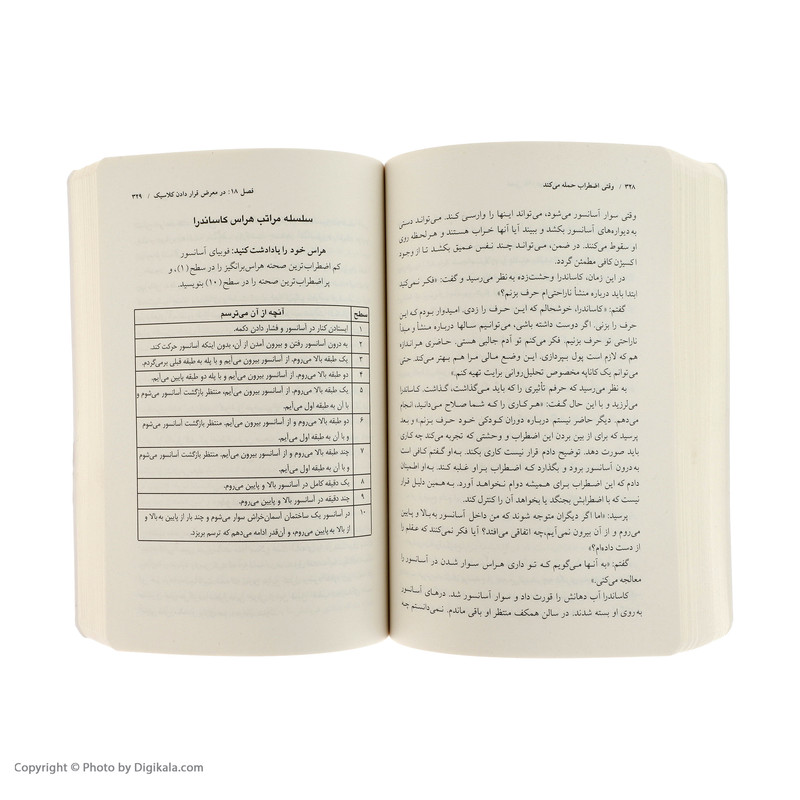 ۳۲۸ / وقتی اضطراب حمله می‌کند
وقتی سوار آسانسور می‌شود، می‌تواند اینها را وارسی کند. می‌تواند دستی
به دیواره‌های آسانسور بکشد و ببیند آیا آنها خراب هستند و هرلحظه روی
او سقوط می‌کنند. در ضمن، می‌تواند چند نفس عمیق بکشد تا از وجود
اکسیژن کافی مطمئن گردد.
در این زمان، کاساندرا وحشت‌زده به نظر می‌رسید و گفت: «فکر نمی‌کنید
ابتدا باید درباره منشأ ناراحتی‌ام حرف بزنم؟»
گفتم: «کاساندرا، خوشحالم که این حرف را زدی. امیدوار بودم که این
حرف را بزنی. اگر دوست داشته باشی، می‌توانیم سالها درباره منشأ و مبدأ
ناراحتی تو حرف بزنیم. فکر می‌کنم تو آدم جالبی هستی. حاضری هر اندازه
هم که لازم است پول بپردازی. این وضع مالی مرا هم بهتر می‌کند. حتی
می‌توانم یک کاناپه مخصوص تحلیل‌روانی برایت تهیه کنم.»
به نظر می‌رسید که حرفم تأثیری را که باید می‌گذاشت، گذاشت. کاساندرا
می‌لرزید و با این حال گفت: «هر کاری را که شما صلاح می‌دانید، انجام
می‌دهم. دیگر حاضر نیستم درباره دوران کودکی خود حرف بزنم.» و بعد
پرسید که برای از بین بردن این اضطراب و وحشتی که تجربه می‌کند چه کاری
باید صورت دهد. توضیح دادم قرار نیست کاری بکند. به‌او گفتم کافی است
به‌درون آسانسور برود و بگذارد که اضطراب بر او غلبه کند. به‌او اطمینان
دادم که این اضطراب برای همیشه دوام نخواهد آورد. به‌همین دلیل قرار
نیست که با اضطرابش بجنگد یا بخواهد آن را کنترل کند.
پرسید: «اما اگر دیگران متوجه شوند که من داخل آسانسور به‌بالا و پایین
می‌روم و از آن بیرون نمی‌آیم، چه اتفاقی می‌افتد؟ آیا فکر نمی‌کنند که عقلم را
از دست داده‌ام؟»
گفتم: «به آنها می‌گویم که تو داری هراس سوار شدن در آسانسور را
معالجه می‌کنی.»
کاساندرا آب دهانش را قورت داد و سوار آسانسور شد. درهای آسانسور
به روی او بسته شدند. در سالن همکف منتظر او باقی ماندم. نمی‌دانستم چه
فصل ۱۸: در معرض قرار دادن کلاسیک / ۳۲۹
سلسله مراتب هراس کاساندرا
هراس خود را یادداشت کنید: فوبیای آسانسور
کم اضطراب‌ترین صحنه هراس‌برانگیز را در سطح (۱)، و
پر اضطراب‌ترین صحنه را در سطح (۱۰) بنویسید.
سطح آنچه از آن می‌ترسم
۱ ایستادن کنار در آسانسور و فشار دادن دکمه.
۲ به درون آسانسور رفتن و بیرون آمدن از آن، بدون اینکه آسانسور حرکت کند.
۳ یک طبقه بالا می‌روم. از آسانسور بیرون می‌آیم و با پله به طبقه قبلی برمی‌گردم.
۴ دو طبقه بالا می‌روم. از آسانسور بیرون می‌آیم و با پله دو طبقه پایین می‌آیم.
۵ یک طبقه بالا می‌روم، از آسانسور بیرون می‌آیم، منتظر بازگشت آسانسور می‌شوم و
با آن به طبقه اول می‌آیم.
۶ دو طبقه بالا می‌روم و از آسانسور بیرون می‌آیم، منتظر بازگشت آسانسور می‌شوم
و با آن به طبقه اول می‌آیم.
۷ چند طبقه بالا می‌روم و از آسانسور بیرون می‌آیم، منتظر بازگشت آسانسور می‌شوم
و با آن به طبقه اول می‌آیم.
۸ یک دقیقه کامل در آسانسور بالا و پایین می‌روم.
۹ چند دقیقه در آسانسور بالا و پایین می‌روم.
۱۰ در آسانسور یک ساختمان آسمان‌خراش سوار می‌شوم و چند بار از پایین به‌بالا و
از بالا به پایین می‌روم، و آن‌قدر ادامه می‌دهم که ترسم بریزد.
Copyright © Photo by Digikala.com